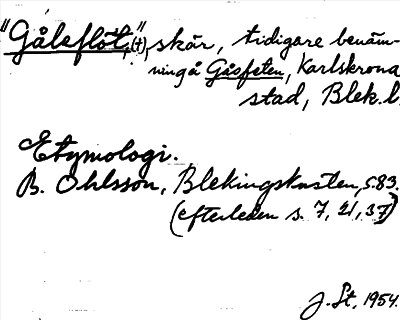 "Gåleflöt"(†), skär, tidigare benäm-
ning å Gåsfeten, Karlskrona
stad, Blek. l.
Etymologi.
B. Ohlsson, Blekingskusten, s. 83.
(efterleden s. 7, 21, 37)
J. St. 1954.